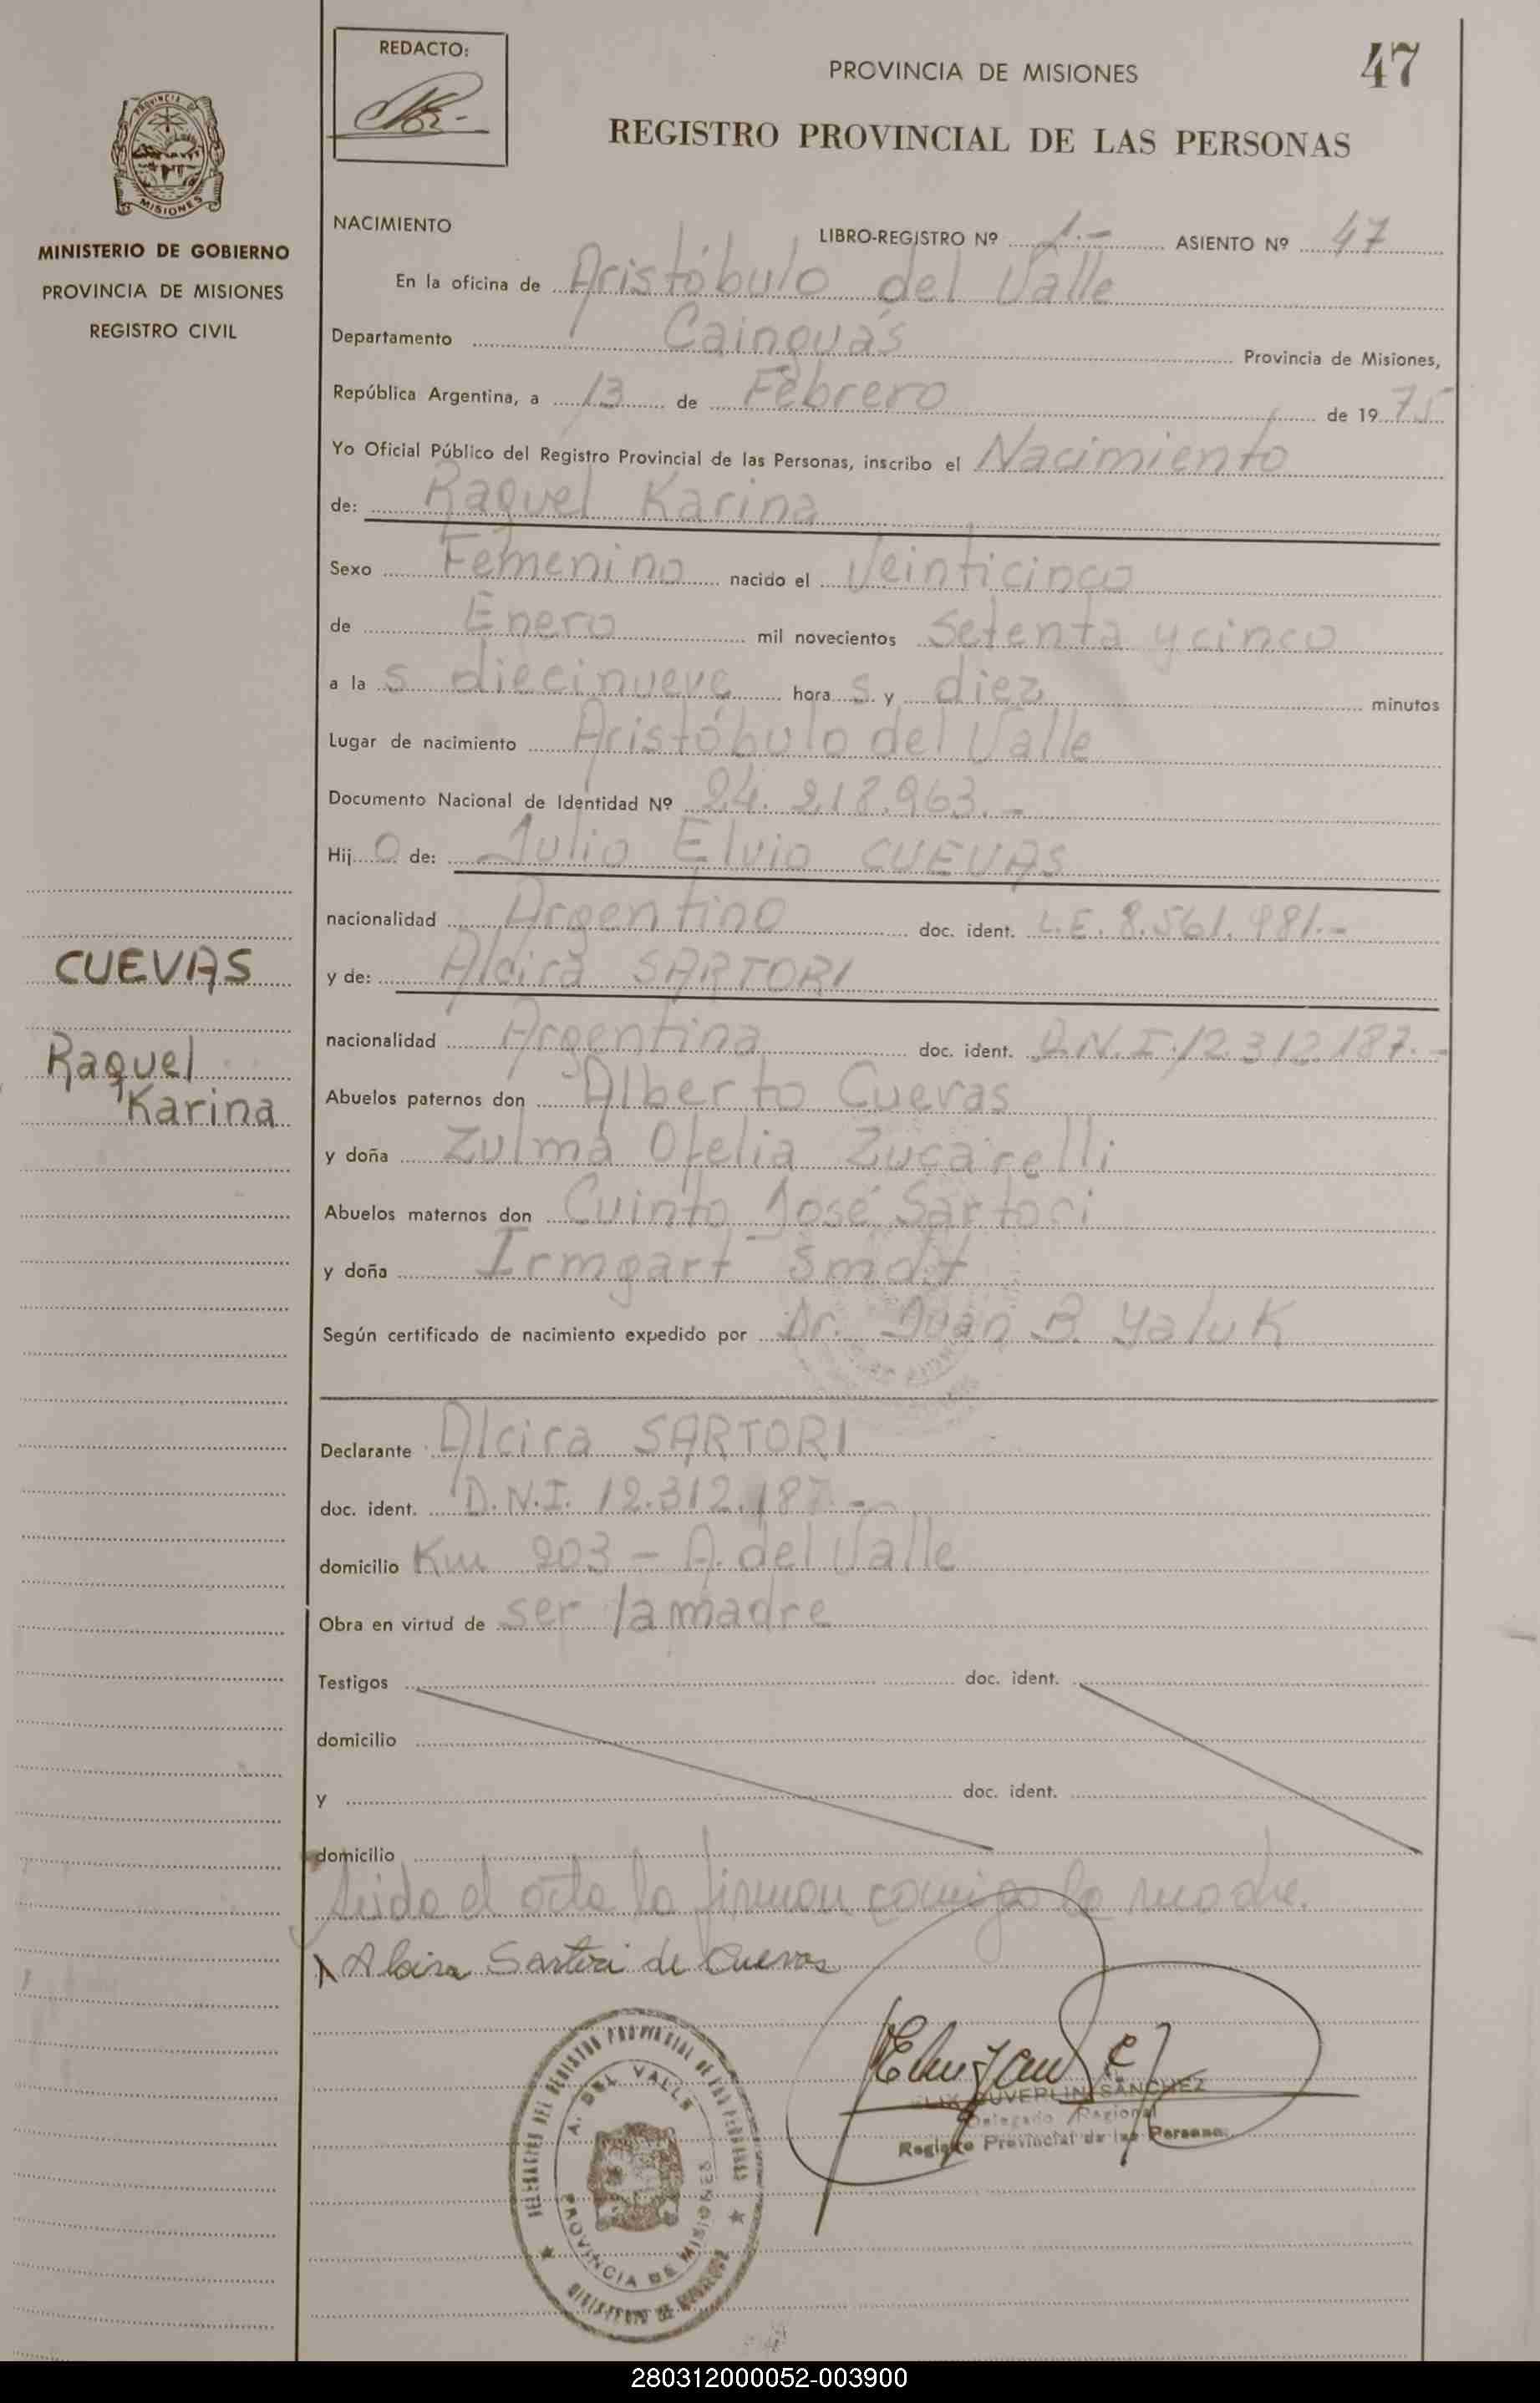 REDACTO:
PROVINCIA DE MISIONES
47
REGISTRO PROVINCIAL DE LAS PERSONAS
PROVINCIA DE
MISIONES
MINISTERIO DE GOBIERNO
PROVINCIA DE MISIONES
REGISTRO CIVIL
NACIMIENTO LIBRO-REGISTRO Nº 1.- ASIENTO Nº 47
En la oficina de Aristóbulo del Valle
Departamento Cainguás Provincia de Misiones,
República Argentina, a 13 de Febrero de 1975
Yo Oficial Público del Registro Provincial de las Personas, inscribo el Nacimiento
de: Raquel Karina
Sexo Femenino nacido el Veinticinco
de Enero mil novecientos Setenta y cinco
a la s diecinueve hora s y diez minutos
Lugar de nacimiento Aristóbulo del Valle
Documento Nacional de Identidad Nº 24.218.963.-
Hij o de: Julio Elvio CUEVAS
nacionalidad Argentino doc. ident. L.E. 8.561.981.-
y de: Alcira SARTORI
nacionalidad Argentina doc. ident. D.N.I. 12.312.187.-
Abuelos paternos don Alberto Cuevas
y doña Zulma Ofelia Zucarelli
Abuelos maternos don Cuinto José Sartori
y doña Irmgart Smdt
Según certificado de nacimiento expedido por Dr. Juan B. Yaluk
CUEVAS
Raquel
Karina
Declarante Alcira SARTORI
doc. ident. D.N.I. 12.312.187.-
domicilio Km 203 - A. del Valle
Obra en virtud de ser la madre
Testigos doc. ident.
domicilio
y doc. ident.
domicilio
Leida el acta la firman conmigo la madre.
Alcira Sartori de Cuevas
DUVERLIN SANCHEZ
Delegado Regional
Registro Provincial de las Personas
DELEGACION DEL REGISTRO PROVINCIAL DE LAS PERSONAS
A. DEL VALLE
PROVINCIA DE MISIONES
MINISTERIO DE GOBIERNO
280312000052-003900